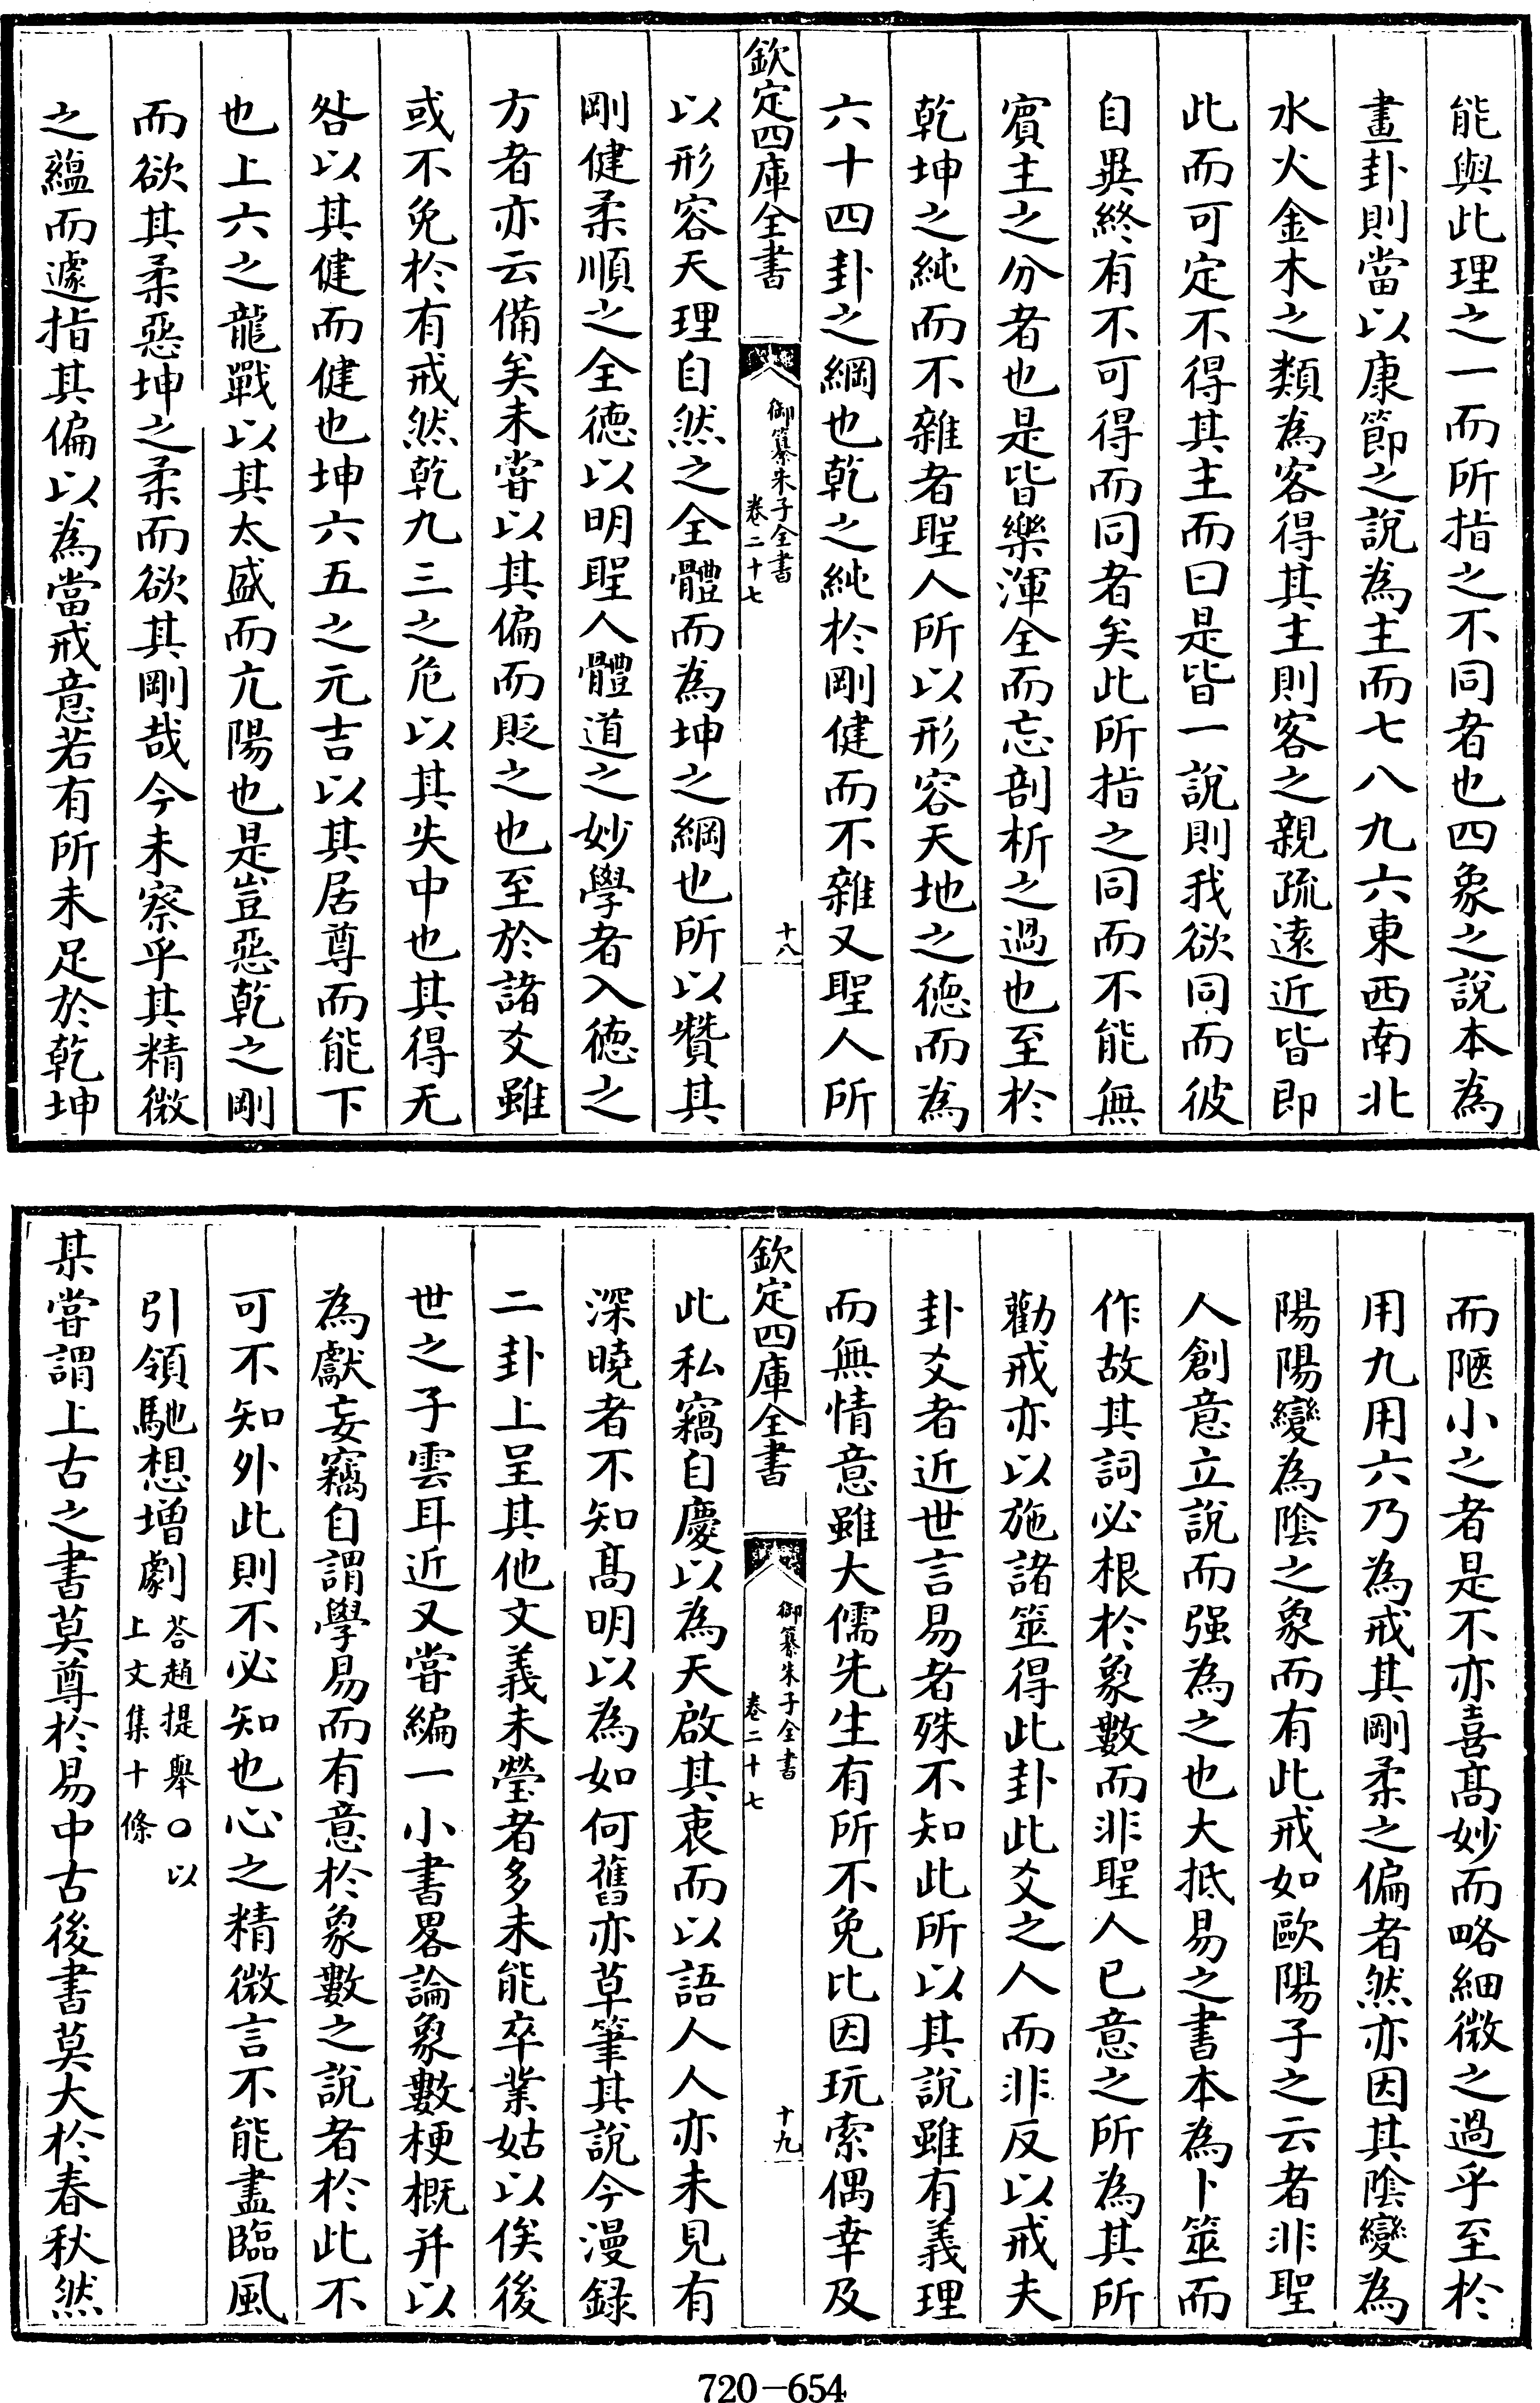 能與此理之一而所指之不同者也四象之說本為
畫卦則當以康節之說為主而七八九六東西南北
水火金木之類為客得其主則客之親疏遠近皆即
此而可定不得其主而曰是皆一說則我欲同而彼
自異終有不可得而同者矣此所指之同而不能無
賓主之分者也是皆樂渾全而忘剖析之過也至於
乾坤之純而不雜者聖人所以形容天地之德而為
六十四卦之綱也乾之純於剛健而不雜又聖人所
欽定四庫全書
御纂朱子全書
卷二十七
十八
以形容天理自然之全體而為坤之綱也所以贊其
剛健柔順之全德以明聖人體道之妙學者入德之
方者亦云備矣未嘗以其偏而貶之也至於諸爻雖
或不免於有戒然乾九三之危以其失中也其得无
咎以其健而健也坤六五之元吉以其居尊而能下
也上六之龍戰以其太盛而亢陽也是豈惡乾之剛
而欲其柔惡坤之柔而欲其剛哉今未察乎其精微
之蘊而遽指其偏以為當戒意若有所未足於乾坤
而陋小之者是不亦喜髙妙而略細微之過乎至於
用九用六乃為戒其剛柔之偏者然亦因其陰變為
陽陽變為陰之象而有此戒如歐陽子之云者非聖
人創意立說而强為之也大抵易之書本為卜筮而
作故其詞必根於象數而非聖人已意之所為其所
勸戒亦以施諸筮得此卦此爻之人而非反以戒夫
卦爻者近世言易者殊不知此所以其說雖有義理
而無情意雖大儒先生有所不免比因玩索偶幸及
欽定四庫全書
御纂朱子全書
卷二十七
十九
此私竊自慶以為天啟其衷而以語人人亦未見有
深曉者不知髙明以為如何舊亦草筆其說今漫錄
二卦上呈其他文義未瑩者多未能卒業姑以俟後
世之子雲耳近又嘗編一小書畧論象數梗概并以
為獻妄竊自謂學易而有意於象數之說者於此不
可不知外此則不必知也心之精微言不能盡臨風
引領馳想增劇 荅趙提舉〇以
上文集十條
某嘗謂上古之書莫尊於易中古後書莫大於春秋然
720-654